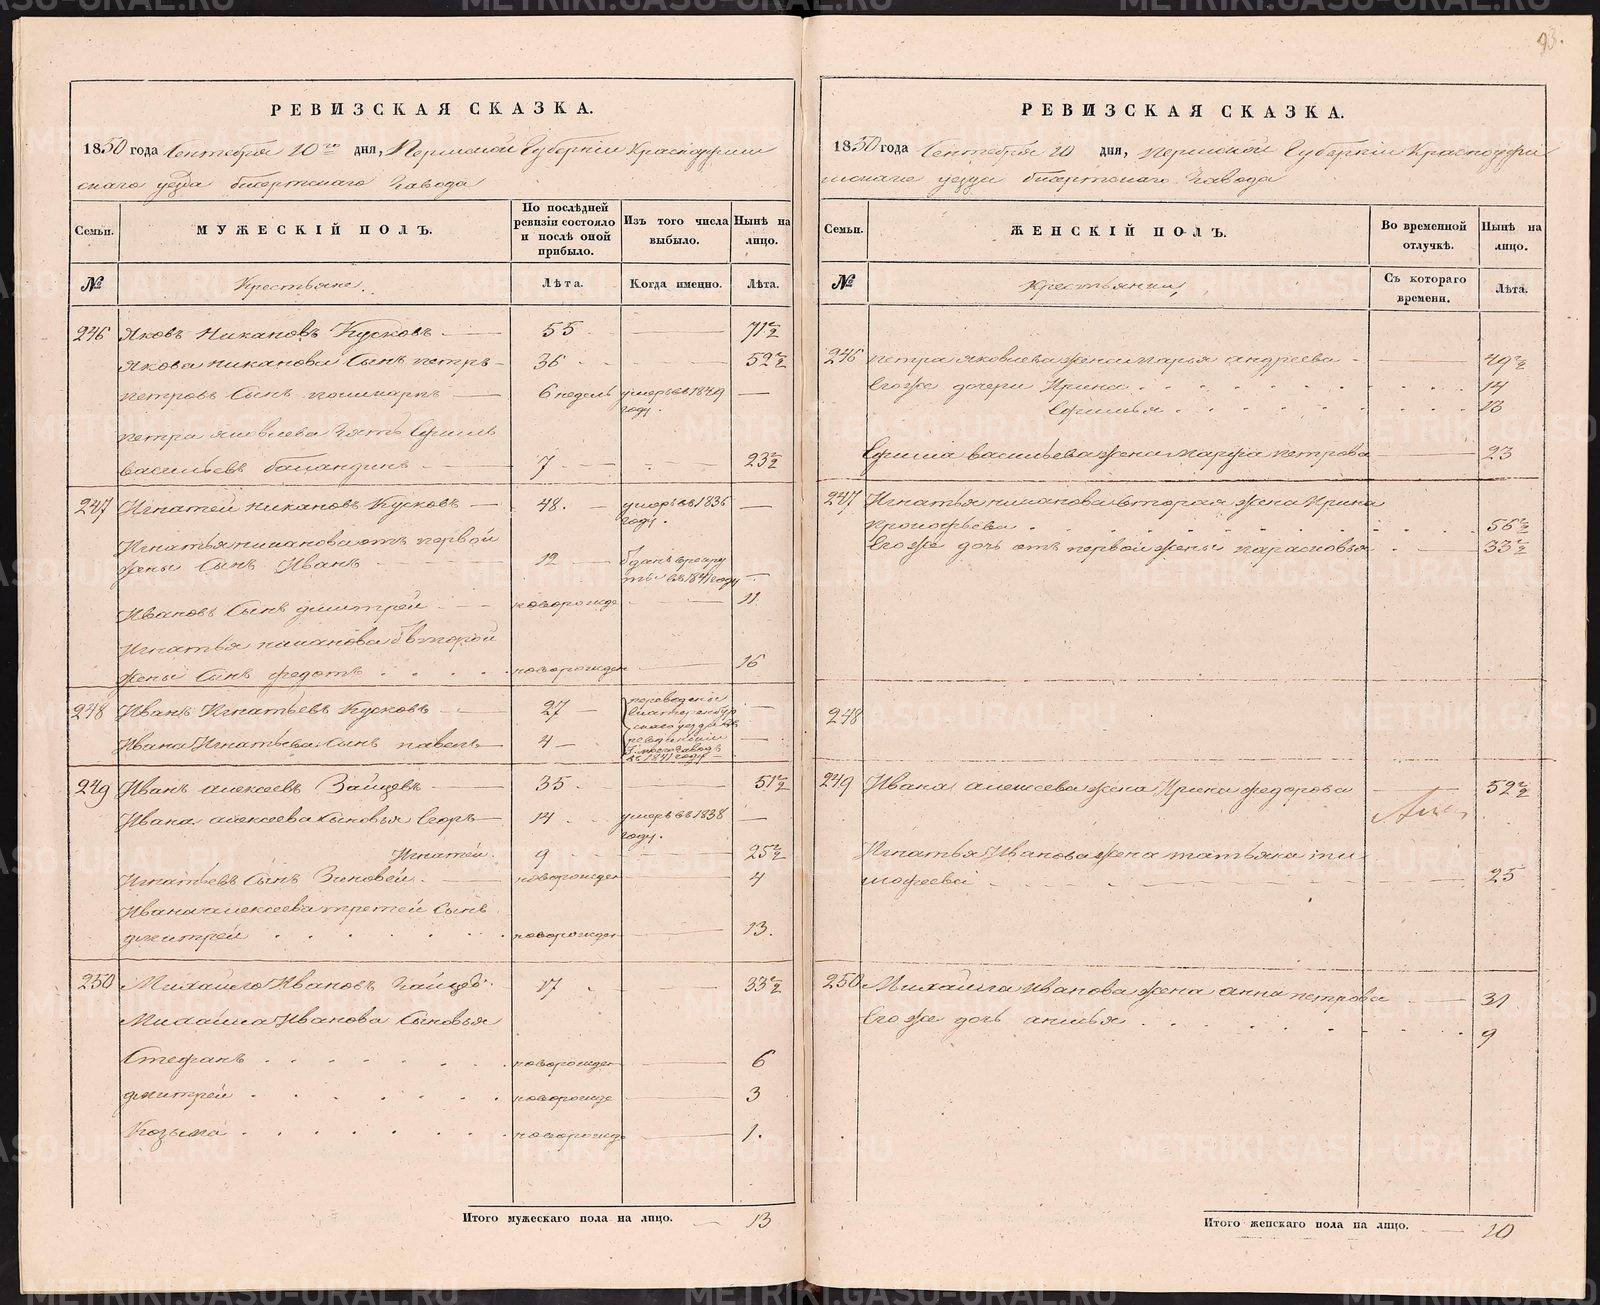 93.
РЕВИЗСКАЯ СКАЗКА.
1850 года Сентября 20го дня, Пермской Губерніи Красноуфим
скаго уезда бисертскаго Завода
Семьи.
МУЖЕСКІЙ ПОЛЪ.
По послѣдней ревизіи состояло и послѣ оной прибыло.
Изъ того числа выбыло.
Нынѣ на лицо.
№
Крестьяне
Лѣта.
Когда именно.
Лѣта.
246 Яковъ Никановъ Кусковъ 55 71 1/2
Якова никанова Сынъ петръ 36 52 1/2
петровъ Сынъ 6 недель умеръ въ 1849
году.
петра яковлева Зять Ефимъ
васильевъ баландинъ 7 23 1/2
247 Игнатей никановъ Кусковъ 48. умеръ въ 1836
году.
Игнатья никанова отъ первой
жены Сынъ Иванъ 12 отданъ в рекру
ты въ 1841 году
Ивановъ Сынъ дмитрей новорожде 11
Игнатья никанова отъ второй
жены Сынъ федотъ новорожден 16
248 Иванъ Игнатьевъ Кусковъ 27 переведены
Екатеринбур
скаго уезда въ
Ивана Игнатьева Сынъ павелъ 4 ревдинскій
заводъ
въ 1841 году
249 Иванъ алексеевъ Зайцевъ 35 51 1/2
Ивана алексеева Сыновья Егоръ 14 умеръ въ 1838
году.
Игнатей 9 25 1/2
Игнатьевъ Сынъ Зиновей новорожден 4
Ивана алексеева третей Сынъ
дмитрей новорожден 13.
250 Михайло Ивановъ Зайцовъ 17 33 1/2
Михайла Иванова Сыновья
Стефанъ новорожден 6
дмитрей новорожде 3
Козьма новорожде 1.
Итого мужескаго пола на лицо. 13
РЕВИЗСКАЯ СКАЗКА.
1850 года Сентября 20 дня, пермской Губерніи Красноуфи
мскаго уезда бисертскаго Завода
Семьи.
ЖЕНСКІЙ ПОЛЪ.
Во временной отлучкѣ.
Нынѣ на лицо.
№
Крестьянки
Съ котораго времени.
Лѣта.
246 петра яковлева жена марья андреева 49 1/2
Его же дочери Ирина 14
Ефимья 13
Ефима васильева жена марфа петрова 23
247 Игнатья никанова вторая жена Ирина
прокофьева 56 1/2
Его же дочь отъ первой жены парасковья 33 1/2
248
249 Ивана алексеева жена Ирина федорова 52 1/2
Игнатья Иванова жена татьяна ти
мофеева 25
250 Михайла Иванова жена анна петрова 31
Его же дочь анисья 9
Итого женскаго пола на лицо. 10